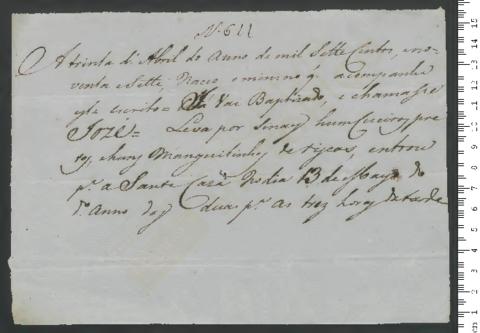 N. 611
A trinta d'Abril do Anno de mil Sette Centos, e no-
venta e Sette, Naceo o menino q. acompanha
este escrito = Vai Baptizado, e chamasse
Jozé = Leva por Sinaes hum Cueiro, pre
to, huns Manguitinhos de riscas, entrou
p.ª a Santa Caza No dia 13 de Mayo do
d.º Anno das duas p.ª As trez horas da tarde